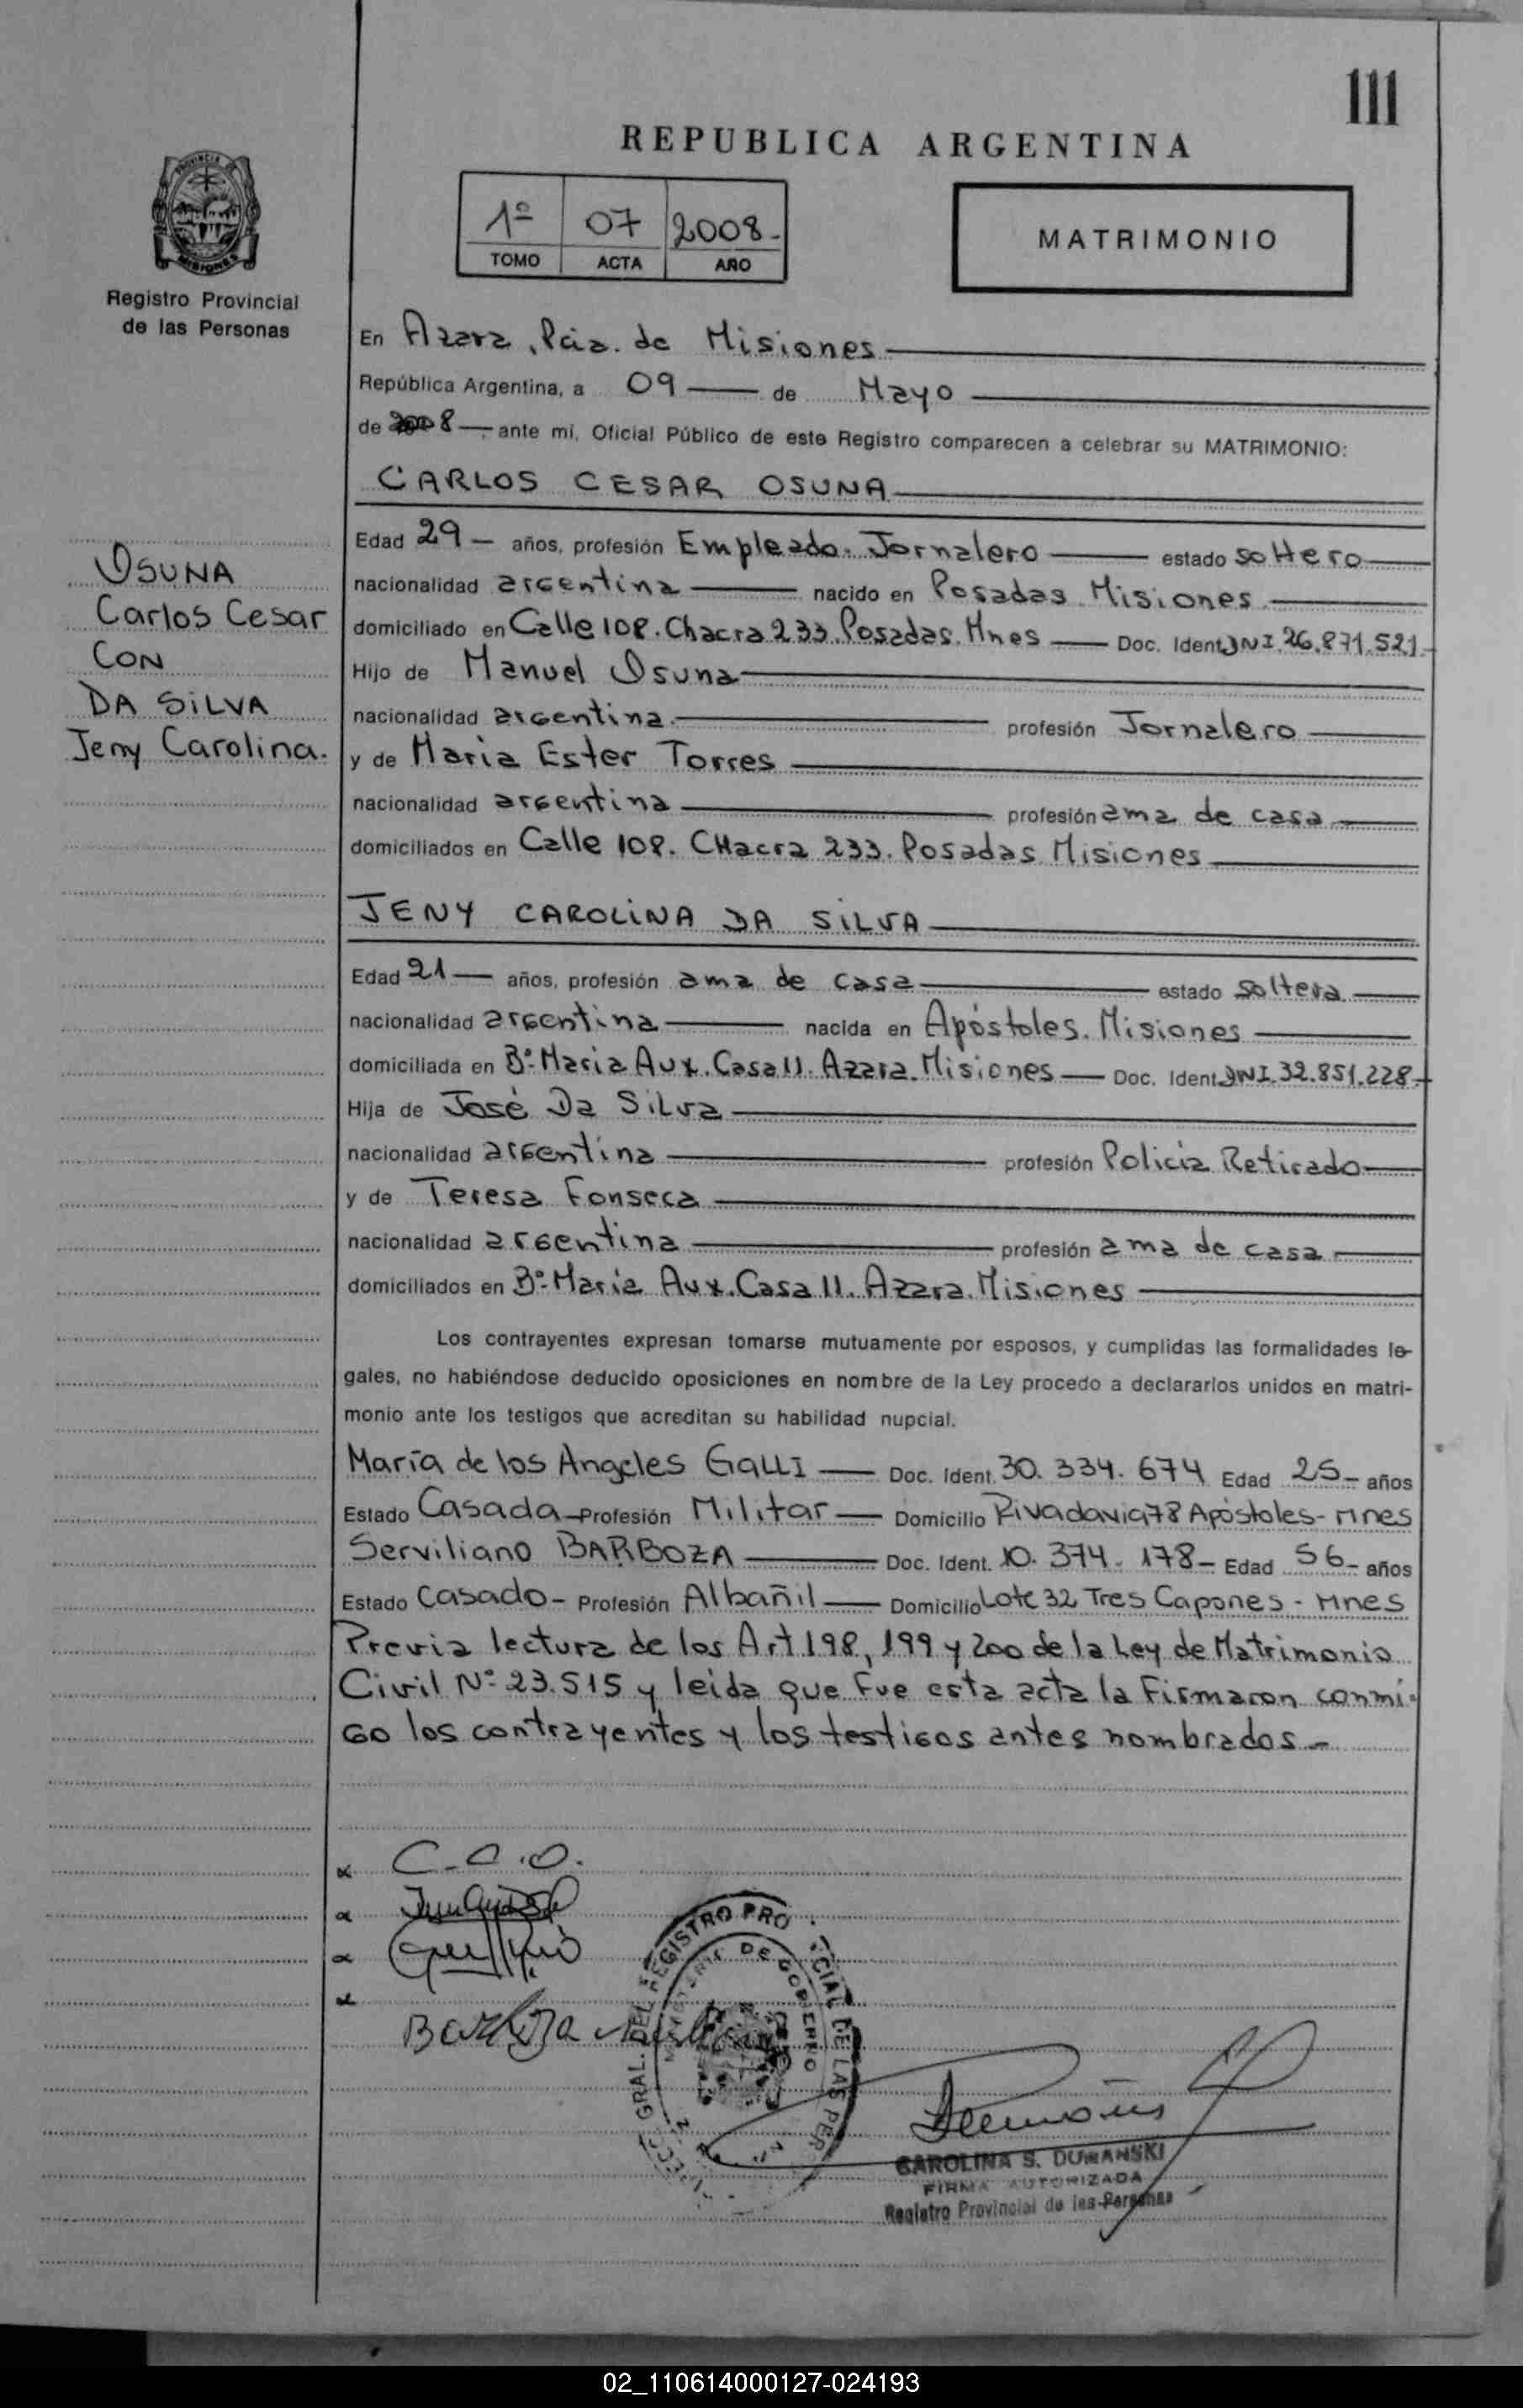 111
REPUBLICA ARGENTINA
1º 07 2008-
TOMO ACTA AÑO
MATRIMONIO
PROVINCIA
MISIONES
Registro Provincial
de las Personas
En Azara, Pcia. de Misiones
República Argentina, a 09 de Mayo
de 2008 ante mi, Oficial Público de este Registro comparecen a celebrar su MATRIMONIO:
CARLOS CESAR OSUNA
OSUNA
Carlos Cesar
CON
DA SILVA
Jeny Carolina.
Edad 29 - años, profesión Empleado. Jornalero estado soltero
nacionalidad argentina nacido en Posadas Misiones
domiciliado en Calle 108. Chacra 233. Posadas. Mnes Doc. Ident DNI. 26.871.521.-
Hijo de Manuel Osuna
nacionalidad argentina. profesión Jornalero
y de Maria Ester Torres
nacionalidad argentina profesión ama de casa
domiciliados en Calle 108. CHacra 233. Posadas Misiones
JENY CAROLINA DA SILVA
Edad 21 años, profesión ama de casa estado soltera
nacionalidad argentina nacida en Apóstoles. Misiones
domiciliada en Bº Maria Aux. Casa 11. Azara. Misiones Doc. Ident DNI. 32.851.228-
Hija de José Da Silva
nacionalidad argentina profesión Policia Retirado
y de Teresa Fonseca
nacionalidad argentina profesión ama de casa
domiciliados en Bº Maria Aux. Casa 11. Azara. Misiones
Los contrayentes expresan tomarse mutuamente por esposos, y cumplidas las formalidades le-
gales, no habiéndose deducido oposiciones en nombre de la Ley procedo a declararlos unidos en matri-
monio ante los testigos que acreditan su habilidad nupcial.
María de los Angeles GALLI Doc. Ident. 30. 334. 674 Edad 25- años
Estado Casada - Profesión Militar Domicilio Rivadavia 78 Apóstoles - Mnes
Serviliano BARBOZA Doc. Ident. 10. 374. 178- Edad 56- años
Estado Casado - Profesión Albañil Domicilio Lote 32 Tres Capones - Mnes
Previa lectura de los Art 198, 199 y 200 de la Ley de Matrimonio
Civil Nº 23.515 y leida que fue esta acta la Firmaron conmi-
go los contrayentes y los testigos antes nombrados.-
C. C. O.
Barboza
GRAL. DEL REGISTRO PRO CIAL DE LAS PER
DE GOBIERNO
CAROLINA S. DUMANSKI
FIRMA AUTORIZADA
Registro Provincial de las Personas
02_110614000127-024193